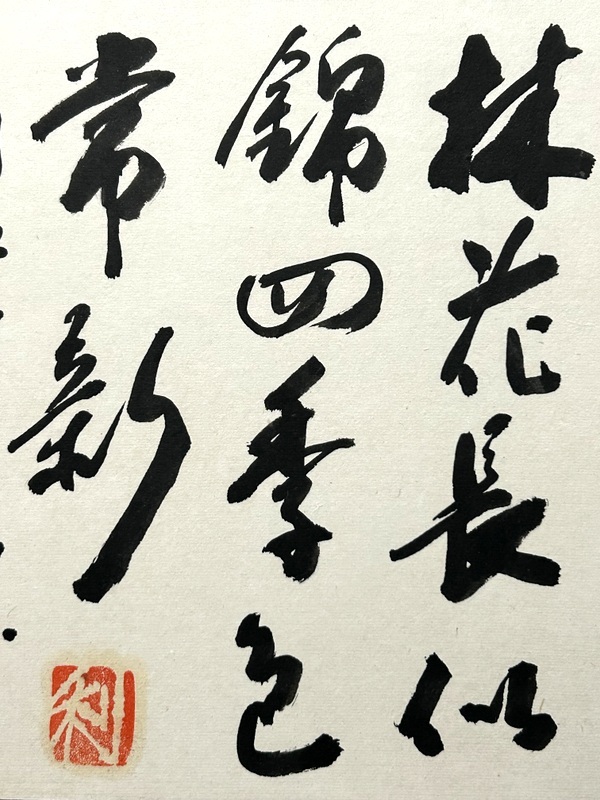 林花長似
錦四季色
常新
利